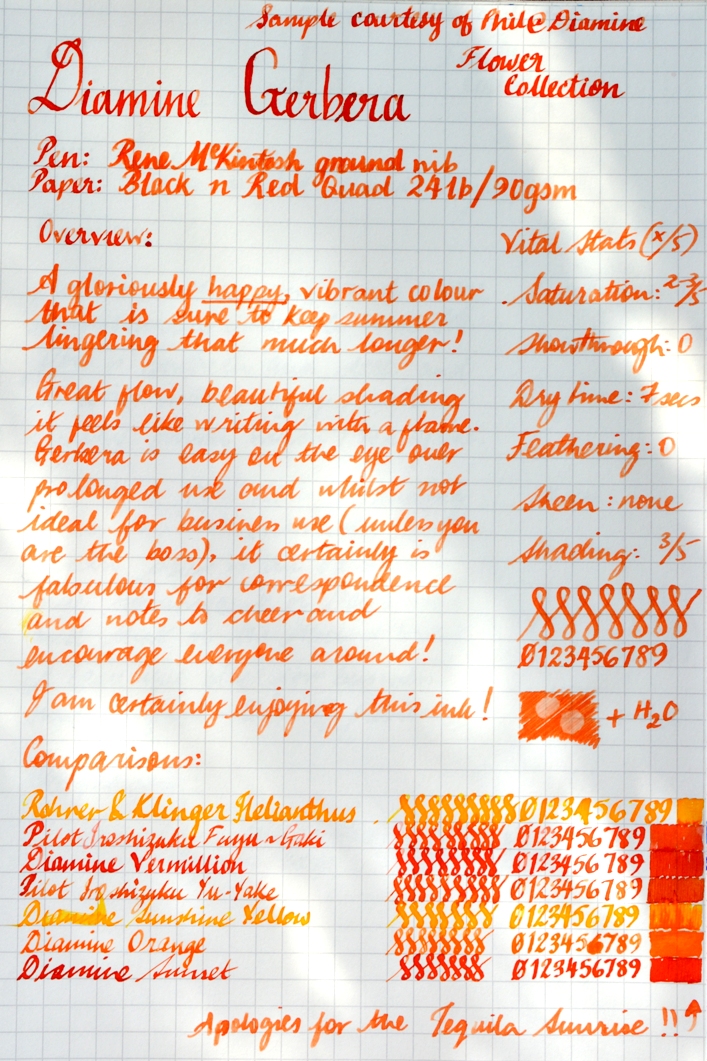 Sample courtesy of Phil@Diamine
Flower
Collection
Diamine Gerbera
Pen: Rene McKintosh ground nib
Paper: Black n Red Quad 24lb/90gsm
Overview:
A gloriously happy, vibrant colour
that is sure to keep summer
lingering that much longer!
Great flow, beautiful shading
it feels like writing with a flame.
Gerbera is easy on the eye over
prolonged use and whilst not
ideal for business use (unless you
are the boss), it certainly is
fabulous for correspondence
and notes to cheer and
encourage everyone around!
I am certainly enjoying this ink!
Vital Stats (x/5)
Saturation: 2-3/5
Showthrough: 0
Dry time: 7secs
Feathering: 0
Sheen: none
Shading: 3/5
0123456789
+ H2O
Comparisons:
Rohrer & Klinger Helianthus 0123456789
Pilot Iroshizuku Fuyu-Gaki 0123456789
Diamine Vermillion 0123456789
Pilot Iroshizuku Yu-Yake 0123456789
Diamine Sunshine Yellow 0123456789
Diamine Orange 0123456789
Diamine Sunset 0123456789
Apologies for the Tequila Sunrise!!